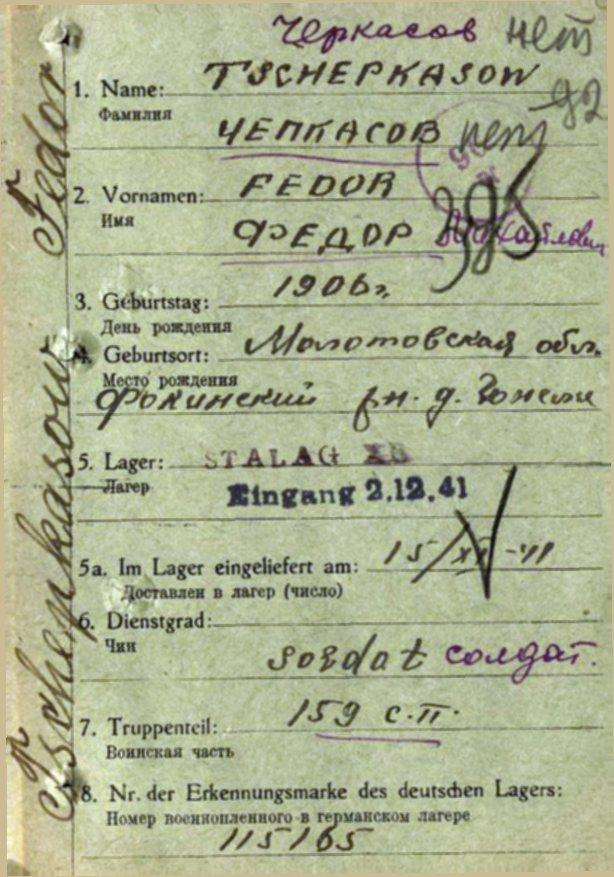 Черкасов нет
92
1. Name: TSCHEPKASOW
Фамилия
ЧЕПКАСОВ нет
2. Vornamen: FEDOR
Имя
ФЕДОР Михайлович
395
3. Geburtstag: 1906г.
День рождения
4. Geburtsort: Молотовская обл.
Место рождения
Фокинский рн. д.
5. Lager: STALAG XB
Лагер
Eingang 2.12.41
5a. Im Lager eingeliefert am: 15/XI-41
Доставлен в лагер (число)
6. Dienstgrad:
Чин
soldat солдат.
7. Truppenteil: 159 с.п.
Воинская часть
8. Nr. der Erkennungsmarke des deutschen Lagers:
Номер военнопленного в германском лагере
115165
Tschepkasow Fedor